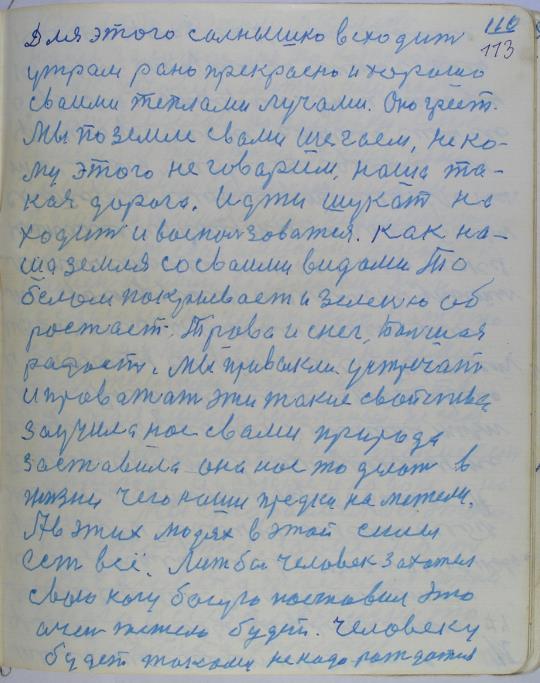 110
113
Для этого солнышко всходит
утрам рано прекрасно и хорошо
сваими теплами лучами. Оно греет.
Мы по земле свами шегаем, неко-
му этого не говарим, наша та-
кая дорога. Идти шукат на
ходит и воспользоватся. как на-
ша земля со сваими видами То
белом покрывает и зеленю об
ростает. Трова и снег,
радость. Мы привыкли устречат
и проважат эти такие свойства
заучила нос свами природа
заставила она нос то делат в
жизни чего наши предки наметели.
А в этих людях в этой силы
Ест всё. Литбы человек захотел
свою ногу босую поставил Это
очен тежело будет. Человеку
будет такому ненадо рождатся